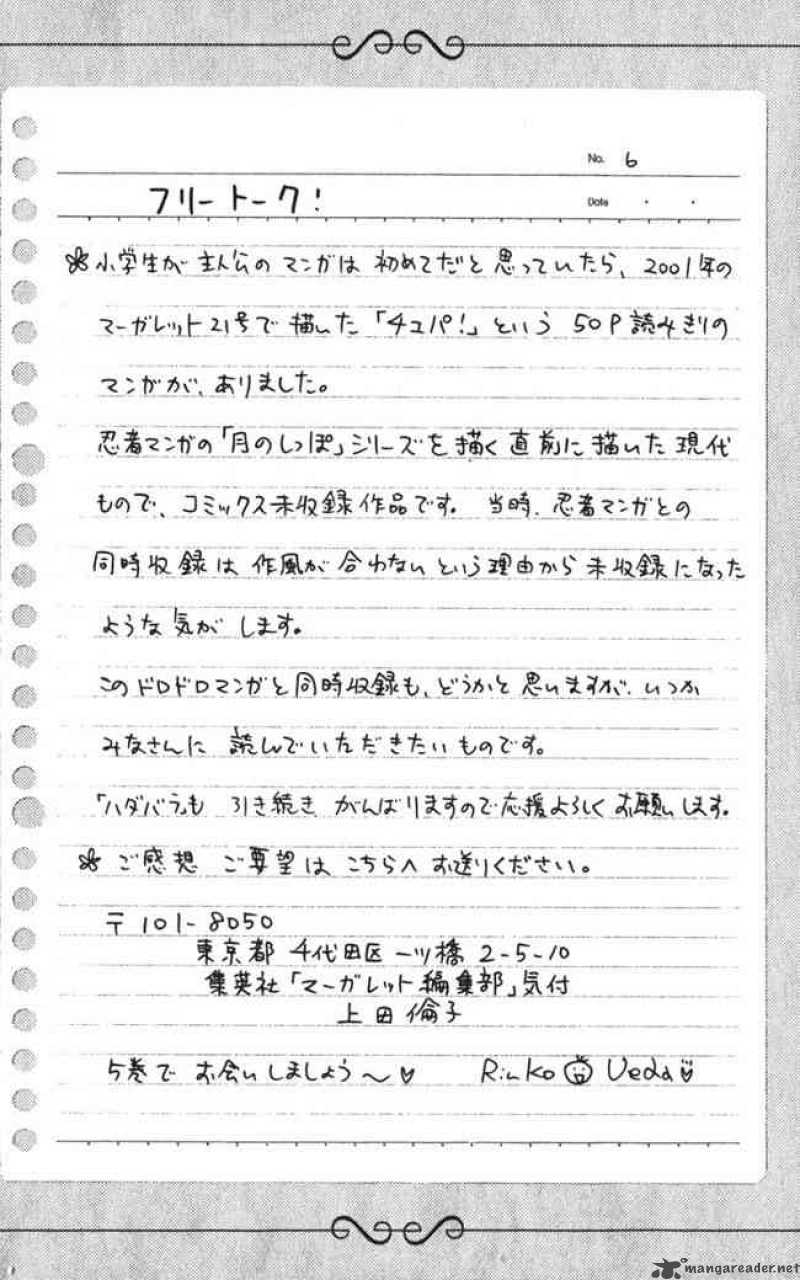 No. 6
フリートーク!
Date ・ ・
小学生が主人公のマンガは初めてだと思っていたら、2001年の
マーガレット21号で描いた「チュパ!」という50P読みきりの
マンガが、ありました。
忍者マンガの「月のしっぽ」シリーズを描く直前に描いた現代
もので、コミックス未収録作品です。当時、忍者マンガとの
同時収録は作風が合わないという理由から未収録になった
ような気がします。
このドロドロマンガと同時収録も、どうかと思いますが、いつか
みなさんに読んでいただきたいものです。
「ハダバラ」も引き続きがんばりますので応援よろしくお願いします。
ご感想 ご要望はこちらへお送りください。
〒101-8050
東京都千代田区一ツ橋2-5-10
集英社「マーガレット編集部」気付
上田倫子
5巻でお会いしましょう〜♡ Rinko Ueda
mangareader.net